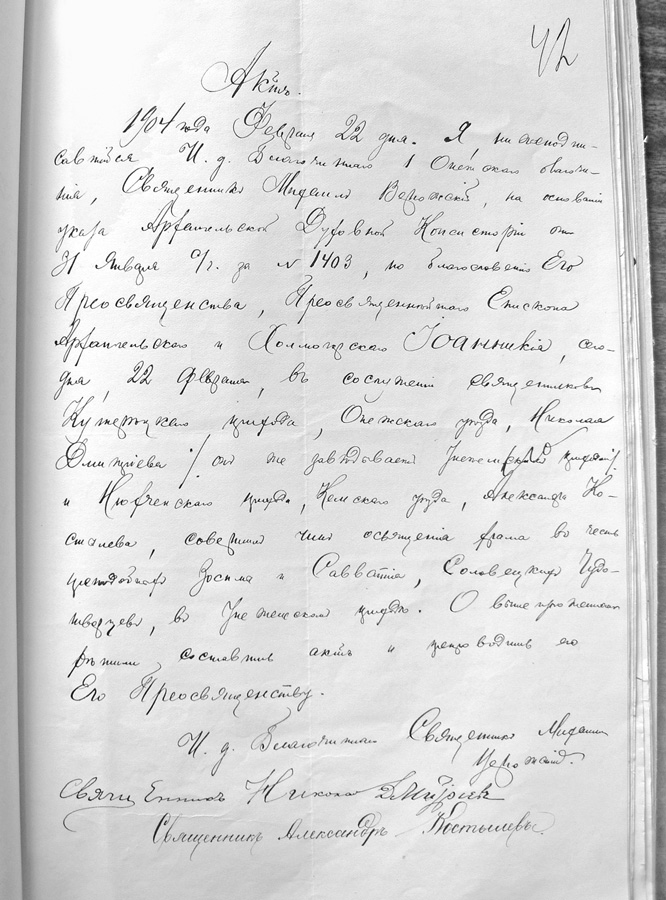 42
Актъ.
1904 года Февраля 22 дня. Я, нижеподпи-
савшійся И. д. Благочиннаго 1 Онежскаго благочи-
нія, Священникъ Михаилъ на основаніи
указа Архангельской Духовной Консисторіи отъ
31 Января с/г. за № 1403, по благословенію Его
Преосвященства, Преосвященнѣйшаго Епископа
Архангельскаго и Холмогорскаго Іоанникія, сего-
дня, 22 февраля, въ сослуженіи священниковъ
прихода, Онежскаго уѣзда, Николая
Дмитріева /: онъ же завѣдываетъ приходомъ:/
и Нюхченскаго прихода, Кемскаго уѣзда, Александра Ко-
стылева, совершилъ чинъ освященія храма въ честь
преподобныхъ Зосима и Савватія, Соловецкихъ Чудо-
творцевъ, въ приходѣ. О вышеизложенномъ
составить актъ и препроводить его
Его Преосвященству.
И. д. Благочиннаго Священникъ Михаилъ
Священникъ Николай Дмитріевъ
Священникъ Александръ Костылевъ.